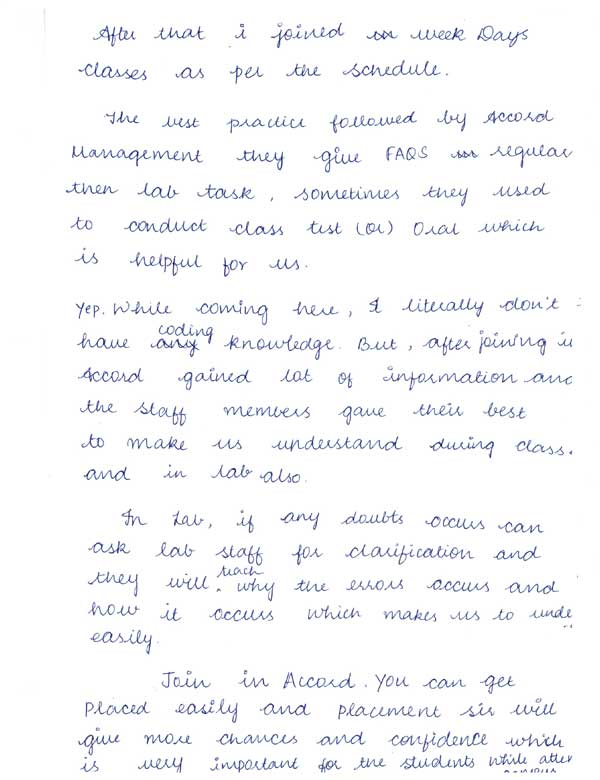 After that i joined week Days
classes as per the schedule.
The best practice followed by Accord
Management they give FAQS regular
then lab task, sometimes they used
to conduct class test (or) Oral which
is helpful for us.
Yep. While coming here, I literally don't
have coding knowledge. But, after joining in
Accord gained lot of information and
the staff members gave their best
to make us understand during class.
and in lab also.
In Lab, if any doubts occurs can
ask lab staff for clarification and
they will teach why the errors occurs and
how it occurs which makes us to unde
easily.
Join in Accord. You can get
placed easily and placement sir will
give more chances and confidence which
is very important for the students while atten